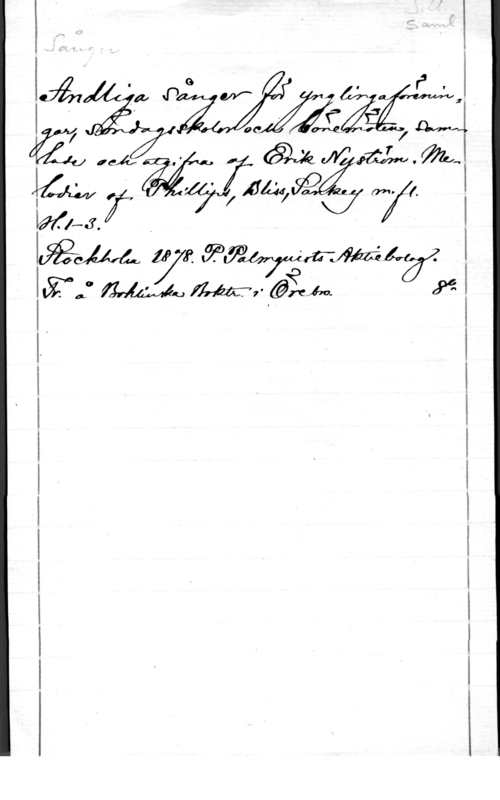 Saml
Sånger
Andliga Sånger för ynglingaförenin-
gar, Söndagsskolor och bönemöten, sam-
lade och utgifna af Erik Nyström. Me-
lodier af Phillips, Bliss, Sankey m. fl.
H. 1-3.
Stockholm 1878. P. Palmquists Aktiebolag.
Tr. å Bohlinska Boktr. i Örebro. 8º